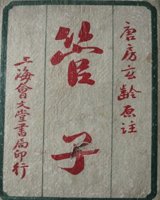 唐房玄齡原注
管子
上海會文堂書局印行